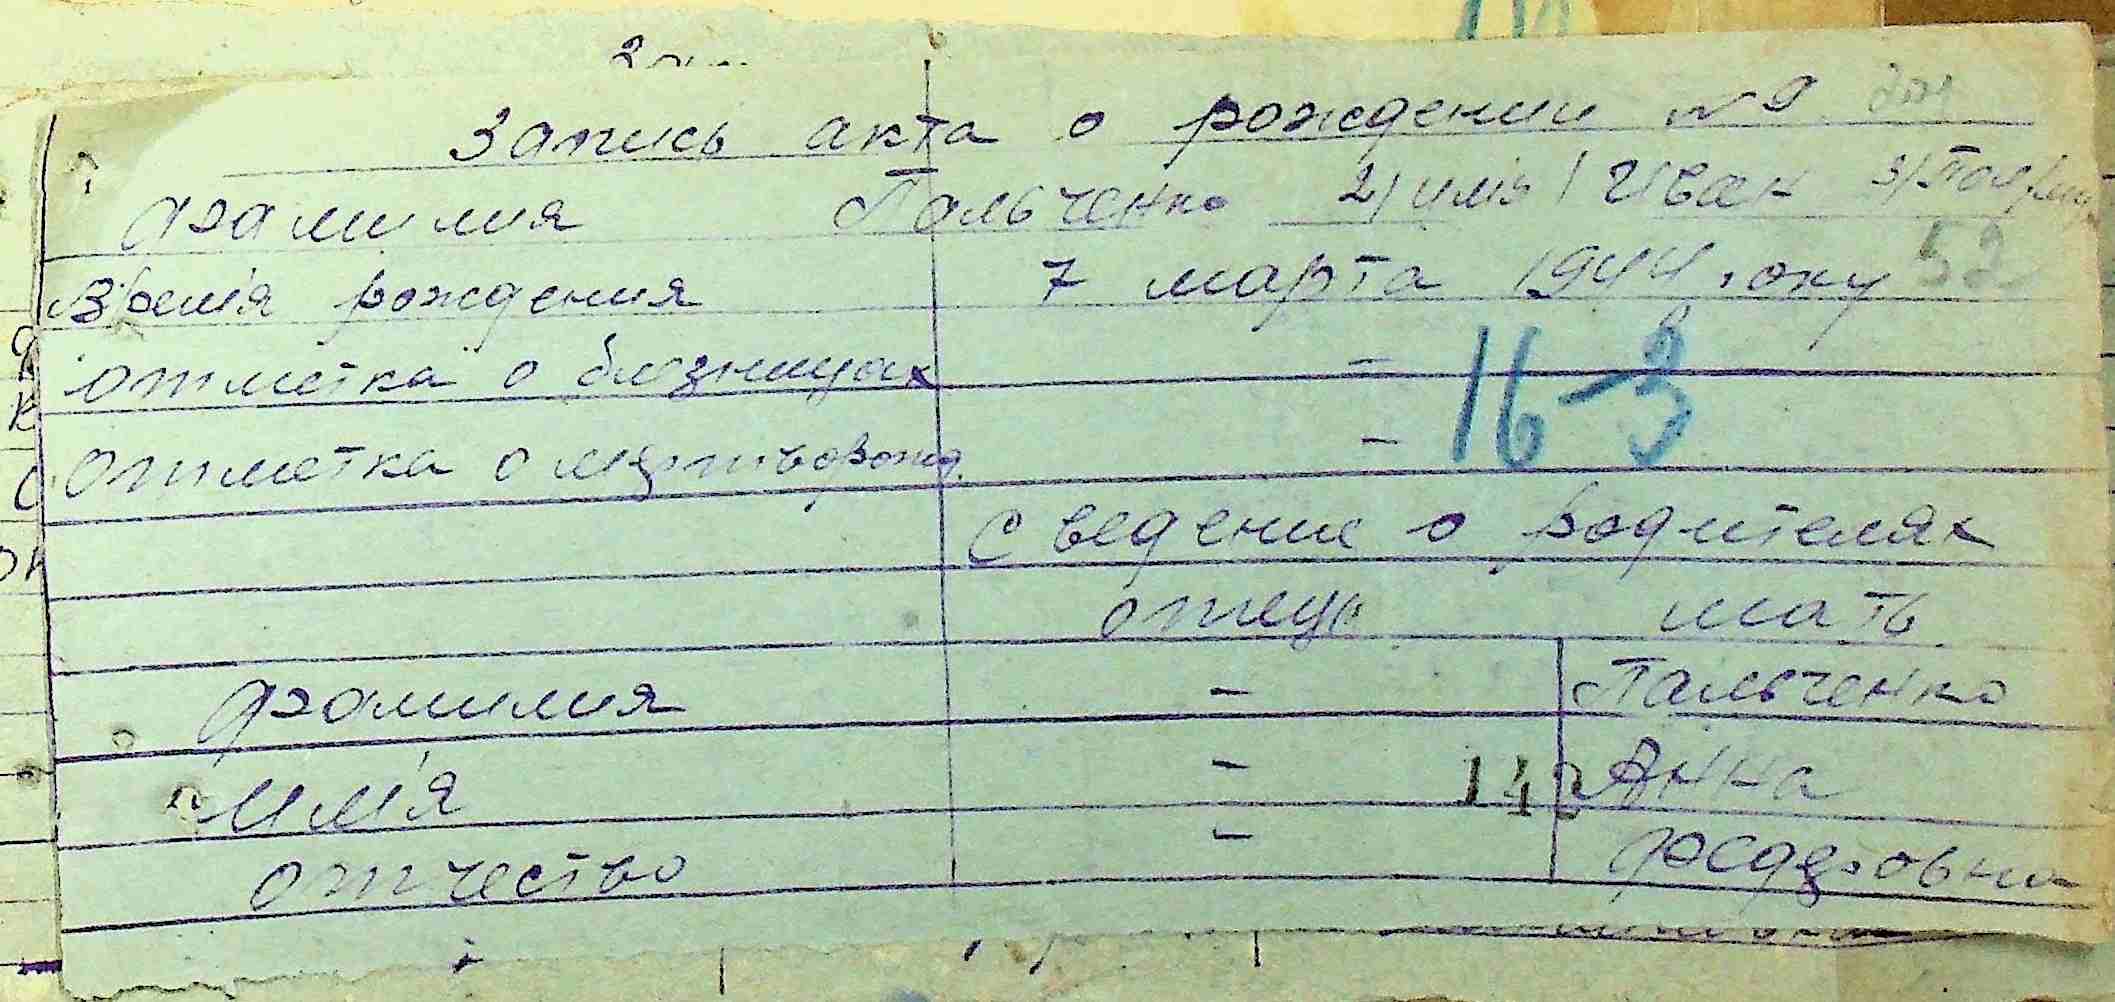 Запись акта о рождении №9
Фамилия Пальченко 2) имя Иван 3)
Время рождения 7 марта 1944 року 52
отметка о близнецах - 16-3
отметка о мертворожд. -
Сведение о родителях
отец мать
Фамилия - Пальченко
Им'я - Анна
отчество - Федоровна